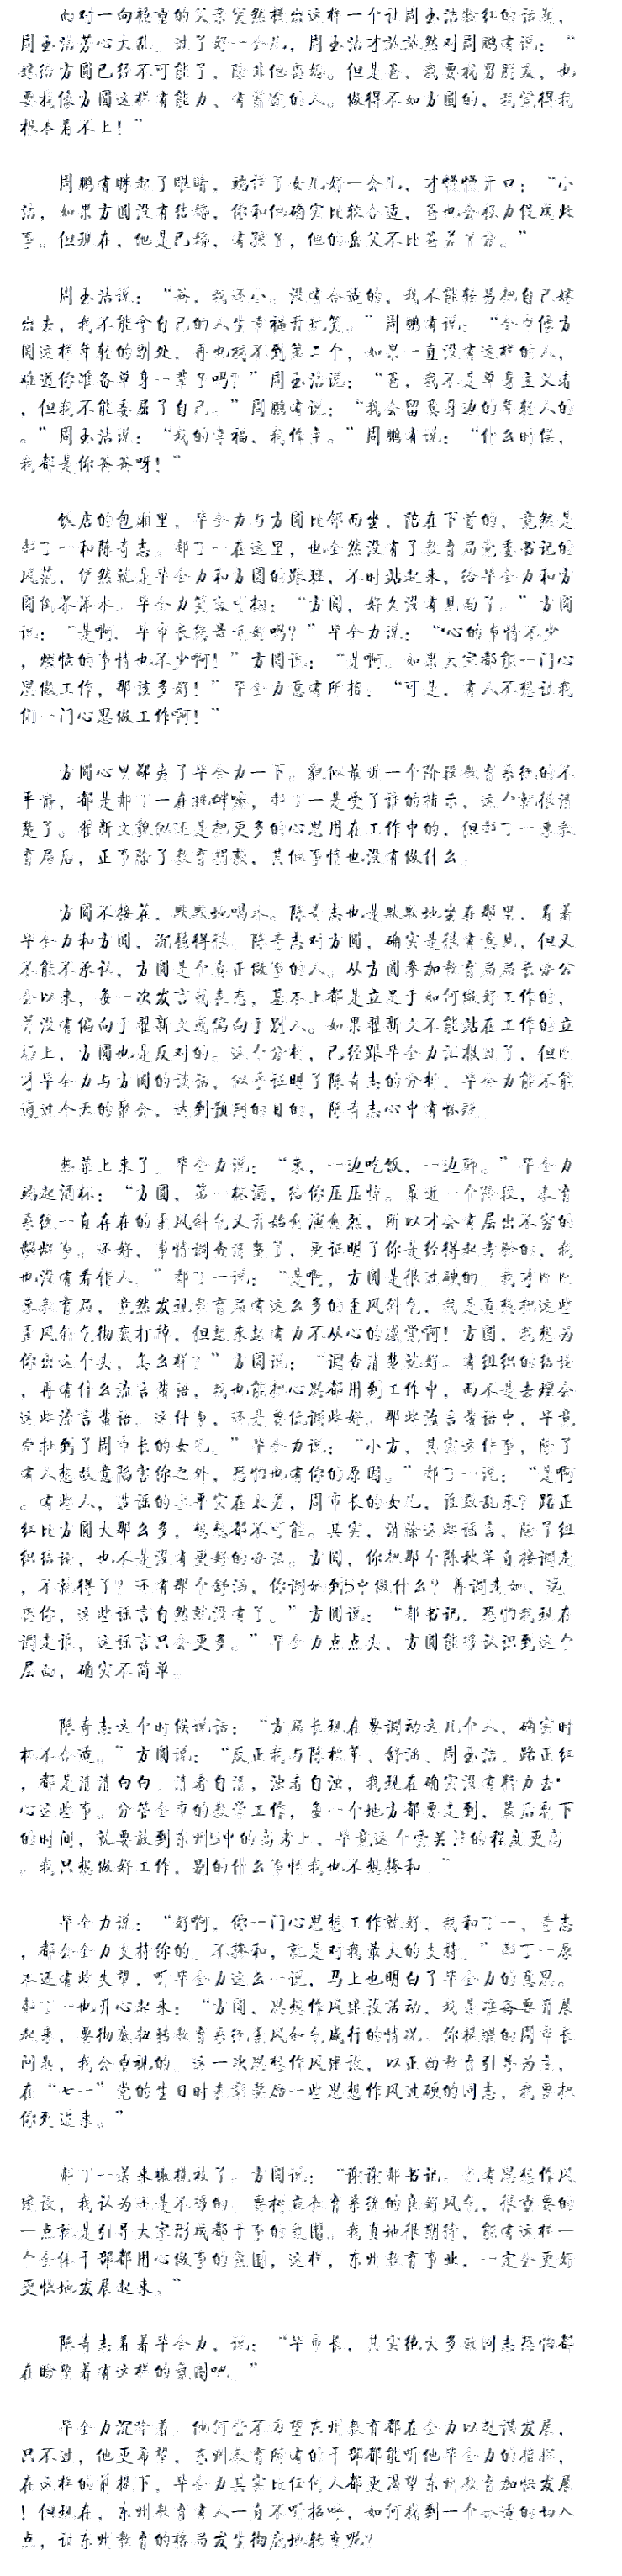 面对一向稳重的父亲突然提出这样一个让周玉洁脸红的话题，
周玉洁芳心大乱，过了好一会儿，周玉洁才 然对周鹏有说：“
嫁给方圆已经不可能了，除非他离婚。但是爸，我要找男朋友，也
要找像方圆这样有能力、有 的人。做得不如方圆的，我觉得我
根本看不上！”
周鹏有眯起了眼睛，端详了女儿好一会儿，才慢慢开口：“小
洁，如果方圆没有结婚，你和他确实比较合适，爸也会极力促成此
事。但现在，他是已婚，有孩子，他的岳父不比爸差半分。”
周玉洁说：“爸，我还小。没有合适的，我不能轻易把自己嫁
出去，我不能拿自己的人生幸福开玩笑。”周鹏有说：“全市像方
圆这样年轻的副处，再也找不到第二个，如果一直没有这样的人，
难道你准备单身一辈子吗？”周玉洁说：“爸，我不是单身主义者
，但我不能委屈了自己。”周鹏有说：“我会留意身边的年轻人的
。”周玉洁说：“我的幸福，我作主。”周鹏有说：“什么时候，
我都是你爸爸呀！”
饭店的包厢里，毕全力与方圆比邻而坐，陪在下首的，竟然是
郝丁一和陈奇志。郝丁一在这里，也全然没有了教育局党委书记的
风范，俨然就是毕全力和方圆的跟班，不时站起来，给毕全力和方
圆倒茶添水。毕全力笑容可掬：“方圆，好久没有见面了。”方圆
说：“是啊，毕市长您最近好吗？”毕全力说：“ 心的事情不少
，烦恼的事情也不少啊！”方圆说：“是啊。如果大家都能一门心
思做工作，那该多好！”毕全力意有所指：“可是，有人不想让我
们一门心思做工作啊！”
方圆心里鄙夷了毕全力一下。貌似最近一个阶段教育系统的不
平静，都是郝丁一在挑 ，郝丁一是受了谁的指示，这个就很清
楚了。翟新文貌似还是把更多的心思用在工作中的，但郝丁一来教
育局后，正事除了教育捐款，其他事情也没有做什么。
方圆不接茬，默默地喝水。陈奇志也是默默地坐在那里，看着
毕全力和方圆，沉稳得很。陈奇志对方圆，确实是很有意见，但又
不能不承认，方圆是个真正做事的人。从方圆参加教育局局长办公
会以来，每一次发言或表态，基本上都是立足于如何做好工作的，
并没有偏向于翟新文或偏向于别人。如果翟新文不能站在工作的立
场上，方圆也是反对的。这个分析，已经跟毕全力汇报过了，但刚
才毕全力与方圆的谈话，似乎证明了陈奇志的分析，毕全力能不能
通过今天的聚会，达到预期的目的，陈奇志心中有怀疑。
热菜上来了。毕全力说：“来，一边吃饭，一边聊。”毕全力
端起酒杯：“方圆，第一杯酒，给你压压惊。最近一个阶段，教育
系统一直存在的歪风斜气又开始愈演愈烈，所以才会有层出不穷的
龌龊事。还好，事情调查清楚了，更证明了你是经得起考验的，我
也没有看错人。”郝丁一说：“是啊，方圆是很过硬的。我才刚刚
来教育局，竟然发现教育局有这么多的歪风斜气，我是真想把这些
歪风斜气彻底打掉，但越来越有力不从心的感觉啊！方圆，我想为
你出这个头，怎么样？”方圆说：“调查清楚就好。有组织的结论
，再有什么流言蜚语，我也能把心思都用到工作中，而不是去理会
这些流言蜚语。这件事，还是要低调些好。那些流言蜚语中，毕竟
牵扯到了周市长的女儿。”毕全力说：“小方，其实这件事，除了
有人想故意陷害你之外，恐怕也有你的原因。”郝丁一说：“是啊
。有些人，造谣的水平实在太差，周市长的女儿，谁敢乱来？路正
红比方圆大那么多，想想都不可能。其实，消除这些谣言，除了组
织结论，也不是没有更好的办法。方圆，你把那个陈秋苹直接调走
，不就得了？还有那个舒涵，你调她到5中做什么？再调走她，远
离你，这些谣言自然就没有了。”方圆说：“郝书记，恐怕我现在
调走谁，这谣言只会更多。”毕全力点点头，方圆能够认识到这个
层面，确实不简单。
陈奇志这个时候说话：“方局长现在要调动这几个人，确实时
机不合适。”方圆说：“反正我与陈秋苹、舒涵、周玉洁、路正红
，都是清清白白。清者自清，浊者自浊，我现在确实没有精力去
心这些事。分管全市的教学工作，每一个地方都要走到，最后剩下
的时间，就要放到东州5中的高考上，毕竟这个受关注的程度更高
。我只想做好工作，别的什么事情我也不想掺和。”
毕全力说：“好啊，你一门心思想工作就好，我和丁一、奇志
，都会全力支持你的。不掺和，就是对我最大的支持。”郝丁一原
本还有些失望，听毕全力这么一说，马上也明白了毕全力的意思。
郝丁一也开心起来：“方圆，思想作风建设活动，我是准备要开展
起来，要彻底扭转教育系统歪风斜气盛行的情况。你提醒的周市长
问题，我会重视的。这一次思想作风建设，以正面教育引导为主，
在“七一”党的生日时表彰奖励一些思想作风过硬的同志，我要把
你列进来。”
郝丁一递来橄榄枝了。方圆说：“谢谢郝书记。光有思想作风
建设，我认为还是不够的。要树立教育系统的良好风气，很重要的
一点就是引导大家形成都干事的氛围。我真地很期待，能有这样一
个全体干部都用心做事的氛围，这样，东州教育事业，一定会更好
更快地发展起来。”
陈奇志看着毕全力，说：“毕市长，其实绝大多数同志恐怕都
在盼望着有这样的氛围吧。”
毕全力沉吟着。他何尝不希望东州教育都在全力以赴谋发展，
只不过，他更希望，东州教育所有的干部都能听他毕全力的指挥，
在这样的前提下，毕全力其实比任何人都更渴望东州教育加快发展
！但现在，东州教育有人一直不听招呼，如何找到一个合适的切入
点，让东州教育的格局发生彻底地转变呢？